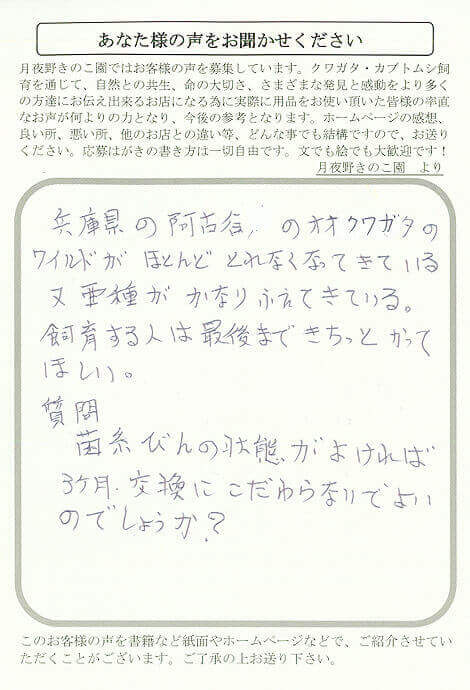 あなた様の声をお聞かせください
月夜野きのこ園ではお客様の声を募集しています。クワガタ・カブトムシ飼
育を通じて、自然との共生、命の大切さ、さまざまな発見と感動をより多く
の方達にお伝え出来るお店になる為に実際に用品をお使い頂いた皆様の率直
なお声が何よりの力となり、今後の参考となります。ホームページの感想、
良い所、悪い所、他のお店との違い等、どんな事でも結構ですので、お送り
ください。応募はがきの書き方は一切自由です。文でも絵でも大歓迎です！
月夜野きのこ園　より
兵庫県の阿古谷、のオオクワガタの
ワイルドが ほとんど とれなくなってきている
又亜種が かなり ふえてきている。
飼育する人は最後まできちっと かって
ほしい。
質問
菌糸びんの状態がよければ
3ケ月.交換に こだわらないでよい
のでしょうか?
このお客様の声を書籍など紙面やホームページなどで、ご紹介させてい
ただくことがございます。ご了承の上お送り下さい。